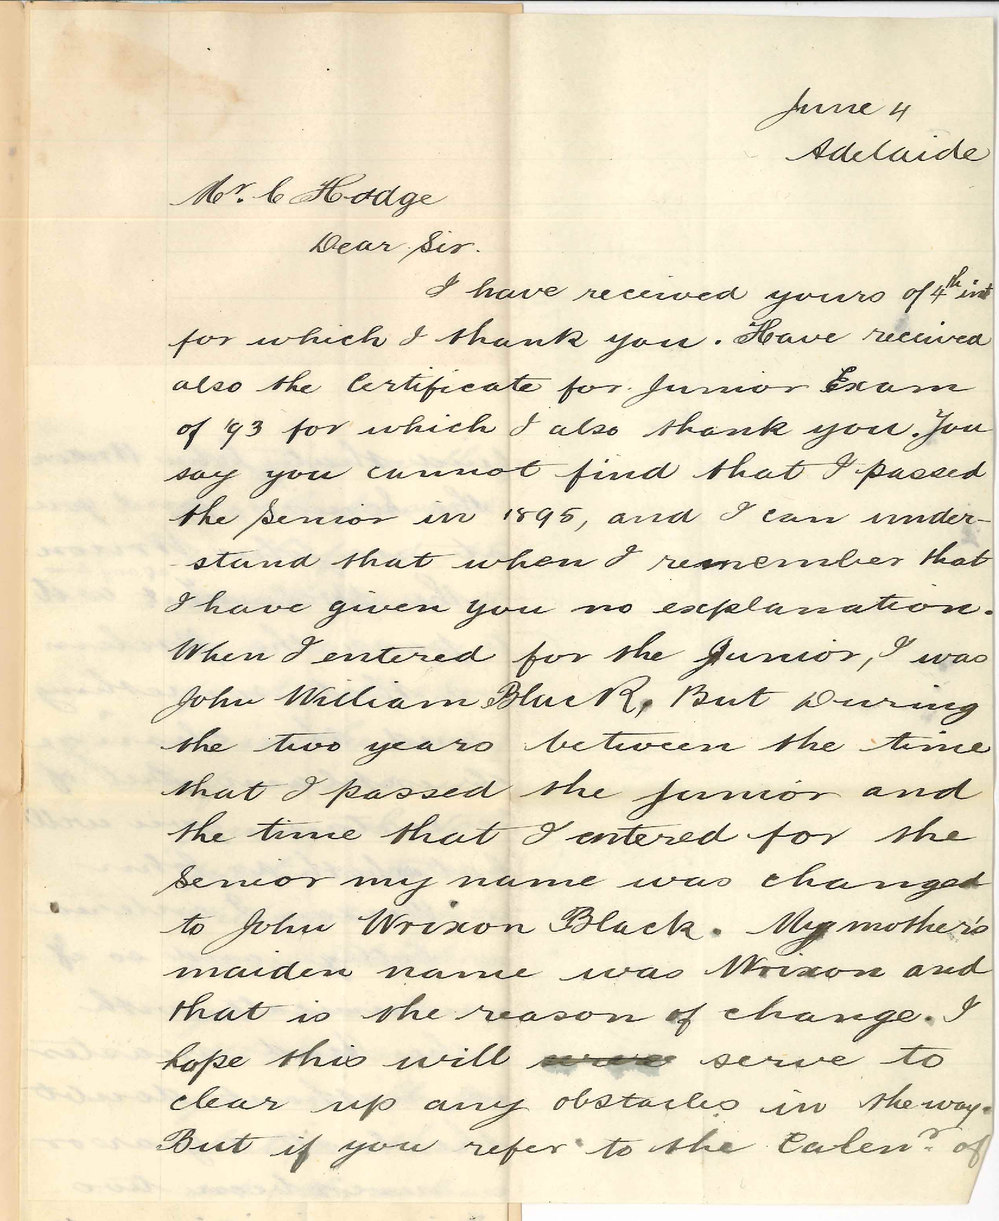 June 4
Adelaide
Mr. C Hodge
Dear Sir.
I have received yours of 4th inst
for which I thank you. Have received
also the Certificate for Junior Exam
of '93 for which I also thank you. You
say you cannot find that I passed
the Senior in 1895, and I can under-
stand that when I remember that
I have given you no explanation.
When I entered for the Junior, I was
John William Black, But During
the two years between the time
that I passed the Junior and
the time that I entered for the
Senior my name was changed
to John Wrixon Black. My mother's
maiden name was Wrixon and
that is the reason of change. I
hope this will serve to
clear up any obstacles in the way.
But if you refer to the Calenr. of